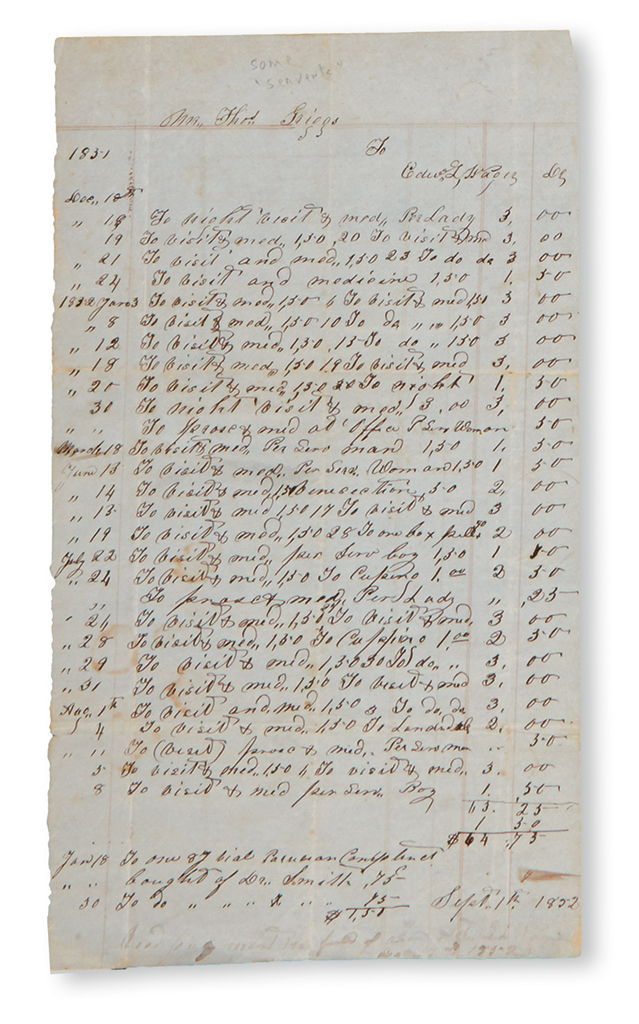 some
"servents"
Mr. Thos. Griggs
1851 To
Edw. L. Wager Dr
Dec,, 18th
,, 18 To night visit & med,, Per Lady 3, 00
19 To visit & med,, 1,50, 20 To visit & med 3, 00
,, 21 To visit and med,, 1,50 23 To do do 3 00
,, 24 To visit and medicine 1,50 1. 50
1852 Jan 3 To visit & med,, 1,50 6 To visit & med 1,50 3 00
,, 8 To visit & med,, 1,50 10 To do ,, ,, 1,50 3 00
,, 12 To visit & med,, 1,50, 15 To do ,, 150 3 00
,, 18 To visit & med,, 1,50 19 To visit & med 3, 00
,, 20 To visit & med,, 1,50 20 To night 1, 50
30 To night visit & med,, 3,00 3, 00
,, ,, To prosc & med at Office P Serv Woman 50
March 18 To visit & med, Per Serv man 1,50 1. 50
June 13 To visit & med,, Per Serv. Woman 1,50 1 50
,, 14 To visit & med, 1,50 Venesection, 50 2, 00
,, 15 To visit & med 1,50 17 To visit & med 3 00
,, 19 To visit & med,, 1,50 28 To one box pills 2 00
July 22 To visit & med,, per Serv boy 1,50 1 50
,, 24 To visit & med,, 1,50 To Cupping 1.00 2 50
,, To prosc & med, Per Lady ,, ,25
,, 26 To visit & med,, 1,50 To visit & med,, 3 00
,, 28 To visit & med,, 1,50 To Cupping 1.00 2 50
,, 29 To visit & med,, 1,50 30 To do,, ,, 3, 00
,, 31 To visit & med,, 1,50 To visit & med 3, 00
Aug,, 1th To visit and med,, 1,50 To do, do 3, 00
4 To visit & med,, 1,50 To 2, 00
,, ,, To (visit) prosc & med,, Per Serv man ,, 50
5 To visit & med,, 1,50 6 To visit & med,, 3. 00
8 To visit & med per Serv,, Boy 1 50
63. 25
1 50
$64 .75
Jan 18 To one vial
,, ,, bought of Dr. Smith ,75
30 To do ,, ,, ,, ,, ,, 75
$1,50 Sept. 1th 1852